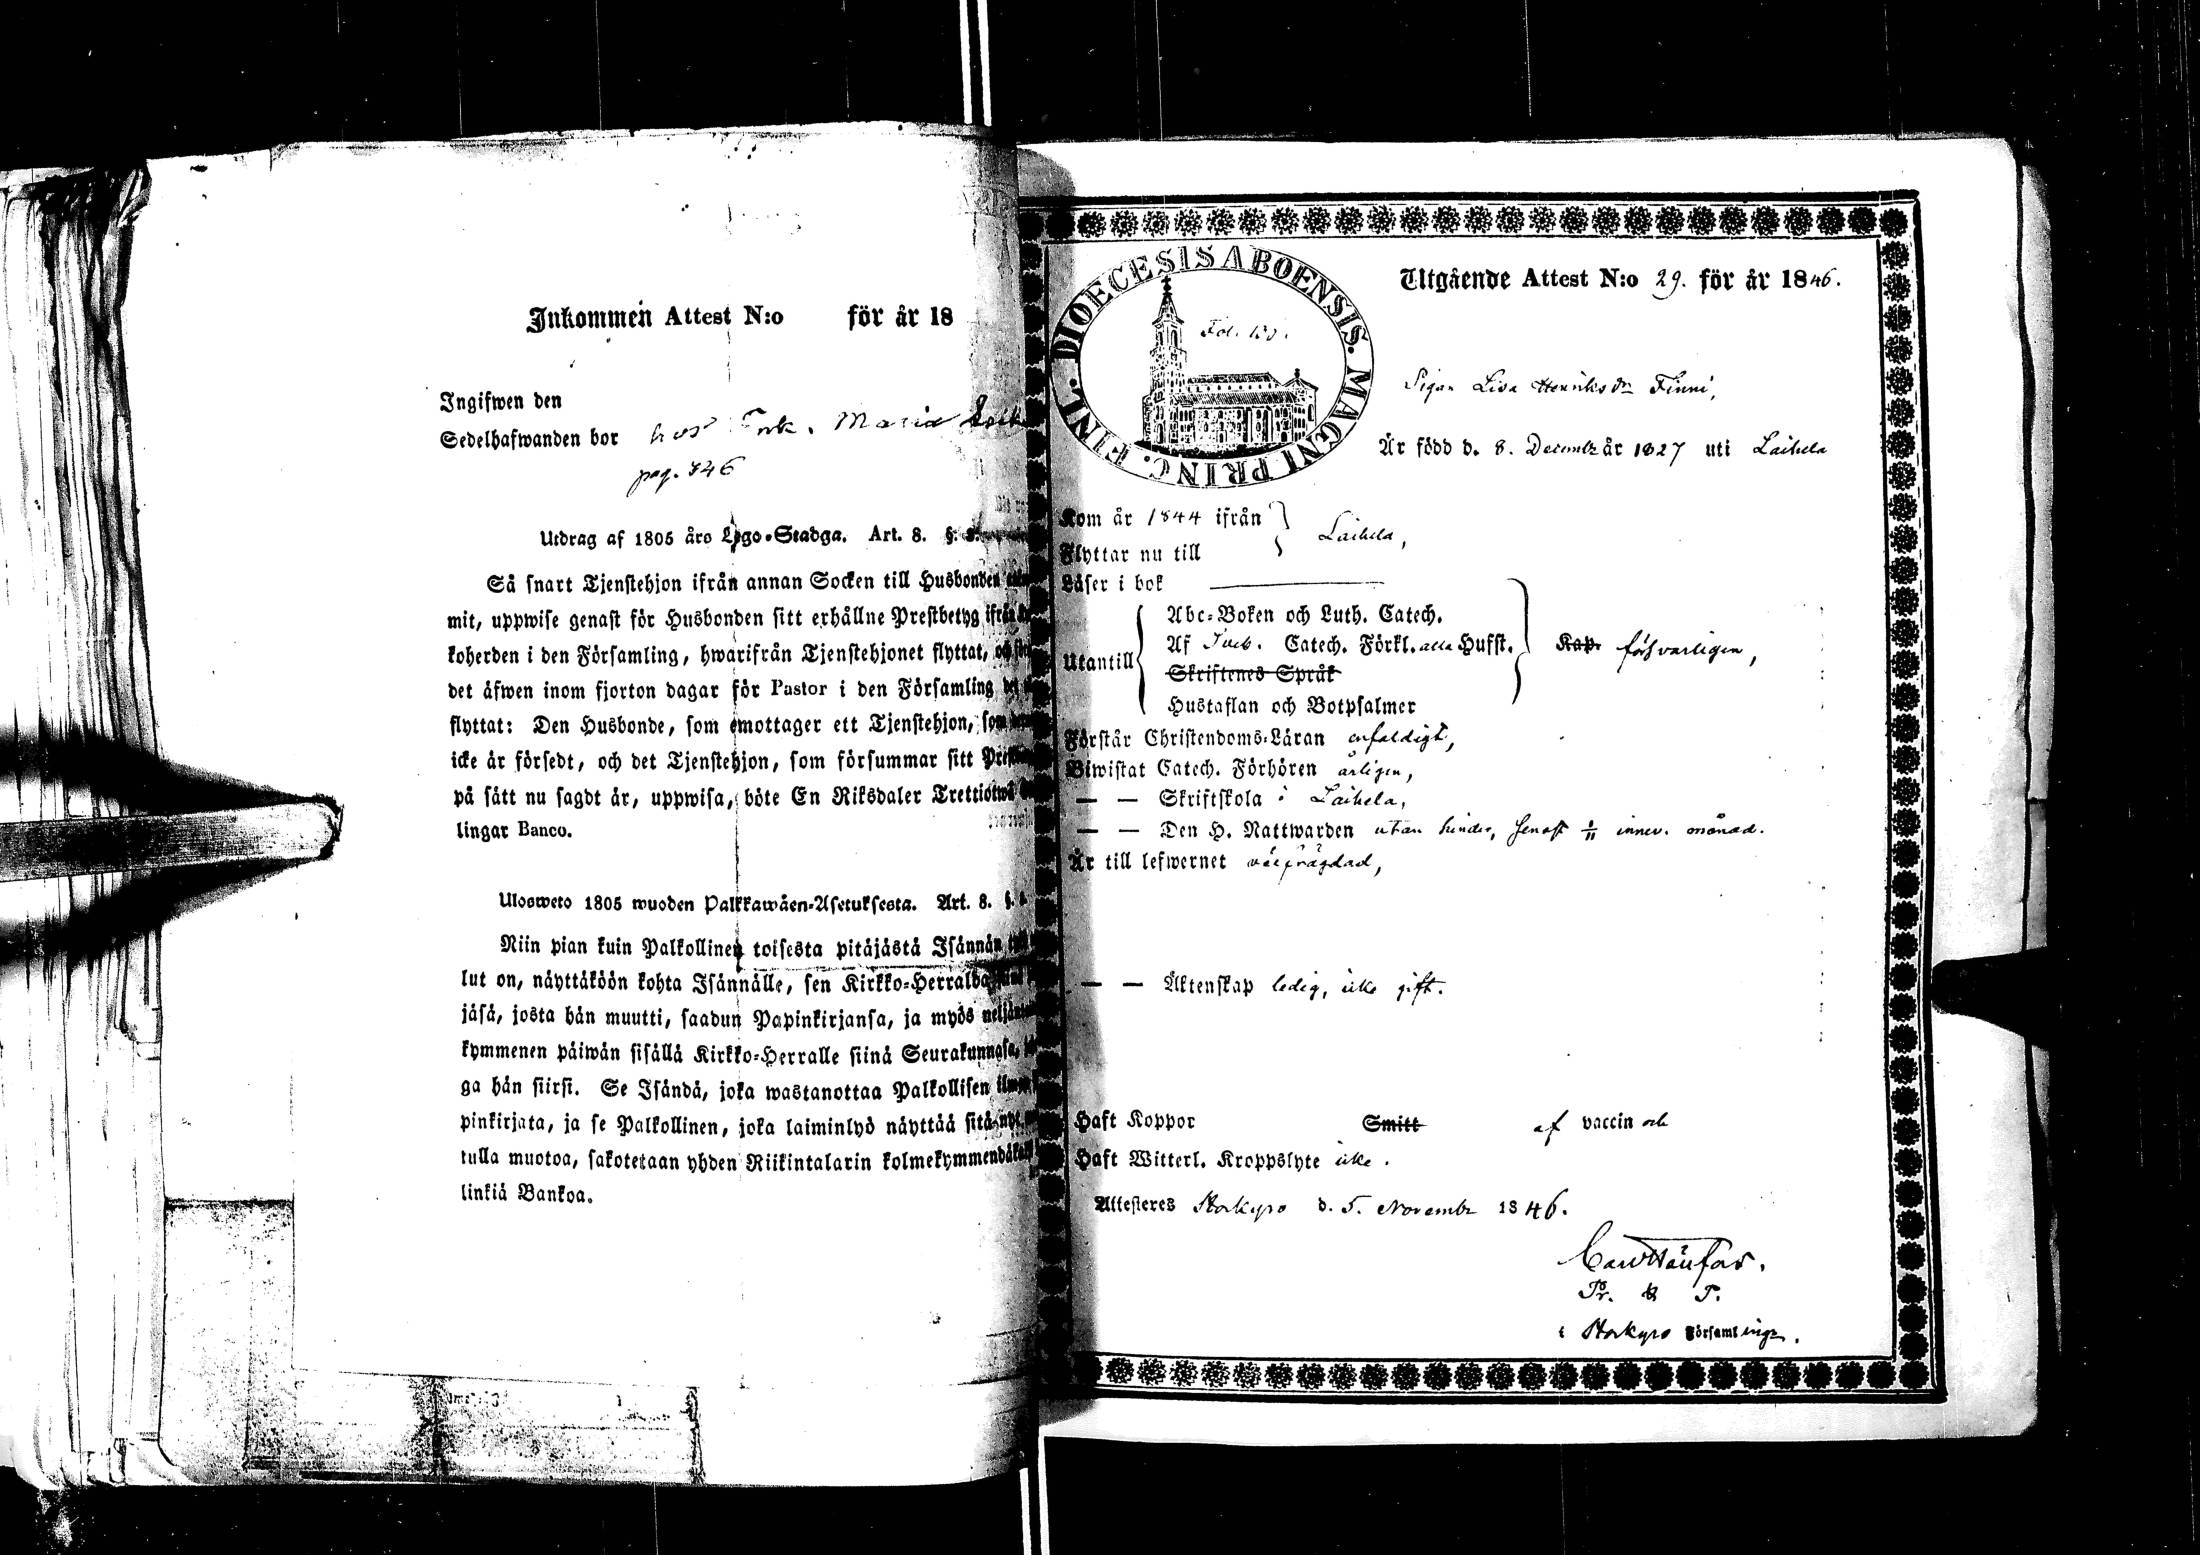 Inkommen Attest N:o för år 18
Ingifwen den
Sedelhafwanden bor hos Enk. Maria
pag. 346
Utdrag af 1805 års Lego-Stadga. Art. 8. §.
Så snart Tjenstehjon ifrån annan Socken till Husbonden
mit, uppwise genast för Husbonden sitt erhållne Prestbetyg ifrån
koherden i den Församling, hwarifrån Tjenstehjonet flyttat, och
det äfwen inom fjorton dagar för Pastor i den Församling det
flyttat: Den Husbonde, som emottager ett Tjenstehjon, som
icke är försedt, och det Tjenstehjon, som försummar sitt
på sätt nu sagdt är, uppwisa, böte En Riksdaler Trettiotwå
lingar Banco.
Ulosweto 1805 wuoden Palkkawäen-Asetuksesta. Art. 8. §.
Niin pian kuin Palkollinen toisesta pitäjästä Isännän
lut on, näyttäköön kohta Isännälle, sen Kirkko-Herralda
jäsä, josta hän muutti, saadun Papinkirjansa, ja myös
kymmenen päiwän sisällä Kirkko-Herralle siinä Seurakunnasa,
ga hän siirsi. Se Isändä, joka wastanottaa Palkollisen
pinkirjata, ja se Palkollinen, joka laiminlyö näyttää sitä
tulla muotoa, sakotetaan yhden Riikintalarin
linkiä Bankoa.
DIOECESIS ABOENSIS. MAGNI PRINC. FINL.
Fol.
Utgående Attest N:o 29. för år 1846.
Pigan Lisa Henriksdr Finni,
Är född d. 8. Decembr år 1827 uti Laihela
Kom år 1844 ifrån
Flyttar nu till } Laihela,
Läser i bok
Utantill
Abc-Boken och Luth. Catech.
Af Sveb. Catech. Förkl. alla Hufst. Kap. försvarligen,
Skriftenes Språk
Hustaflan och Botpsalmer
Förstår Christendoms-Läran enfaldigt,
Biwistat Catech. Förhören årligen,
— — Skriftskola i Laihela,
— — Den H. Nattwarden utan hinder, senast 1/11 innev. månad.
Är till lefwernet välfrägdad,
— — Äktenskap ledig, icke gift.
Haft Koppor Smitt af vaccin och
Haft Witterl. Kroppslyte icke.
Attesteres Storkyro d. 5. Novembr 1846.
Pr. & P.
i Storkyro Församlinge.